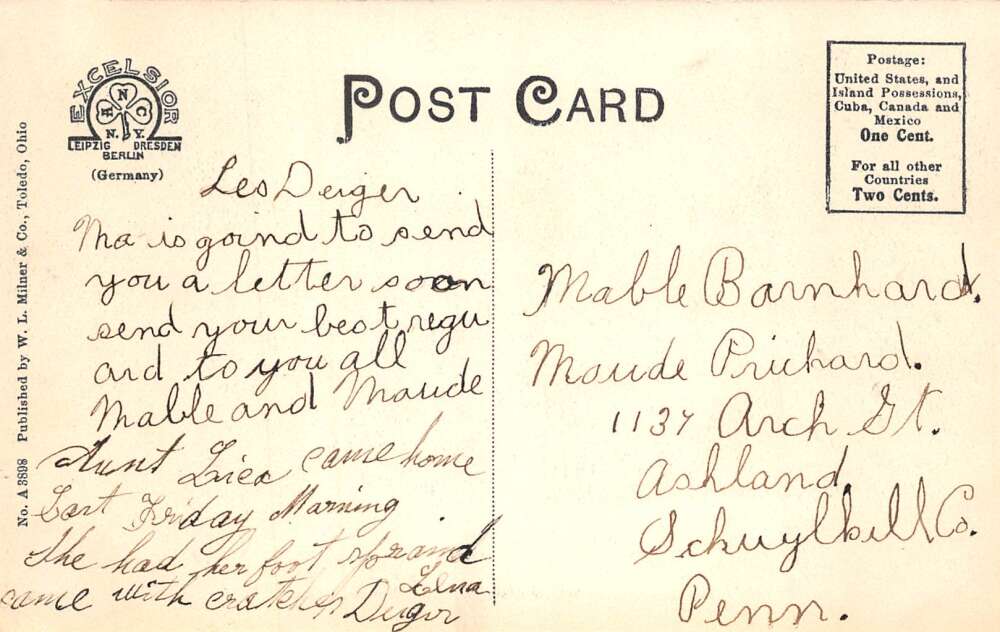 No. A 3898 Published by W. L. Milner & Co., Toledo, Ohio
EXCELSIOR
N
H C
N. Y.
LEIPZIG DRESDEN
BERLIN
(Germany)
POST CARD
Postage:
United States, and
Island Possessions,
Cuba, Canada and
Mexico
One Cent.
For all other
Countries
Two Cents.
Leo Deiger
Ma is goind to send
you a letter soon
send your best regu
ard to you all
Mable and Maude
Aunt came home
Last Friday Morning
She had her foot sprand
came with cratches
Lena
Deiger
Mable Barnhard.
Maude Prichard.
1137 Arch St.
Ashland,
Schuylkill Co.
Penn.